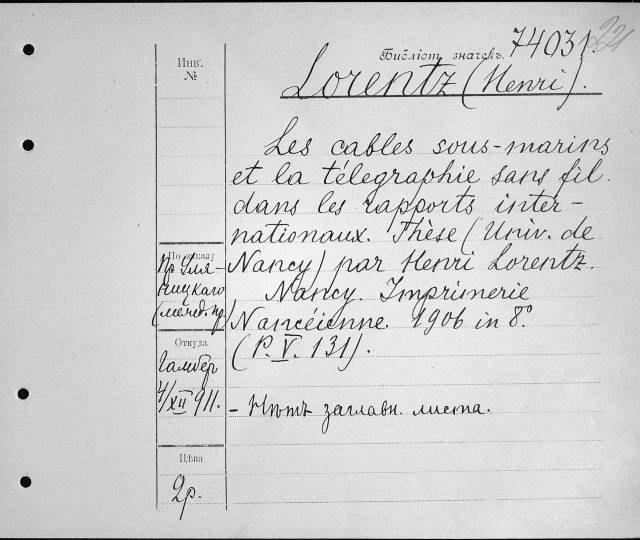 Библіот. значекъ. 74031.
221
Инв.
№
Lorentz (Henri).
Les cables sous-marins
et la télégraphie sans fil
dans les rapports inter-
nationaux. Thèse (Univ. de
Nancy) par Henri Lorentz.
Nancy. Imprimerie
Nancéienne. 1906 in 8.°
(P. V. 131).
По заказу
Пр. Уля-
ницкаго
(межд. пр.)
Откуда
4/XII 911.
- Нѣтъ заглавн. листа.
Цѣна
2р.